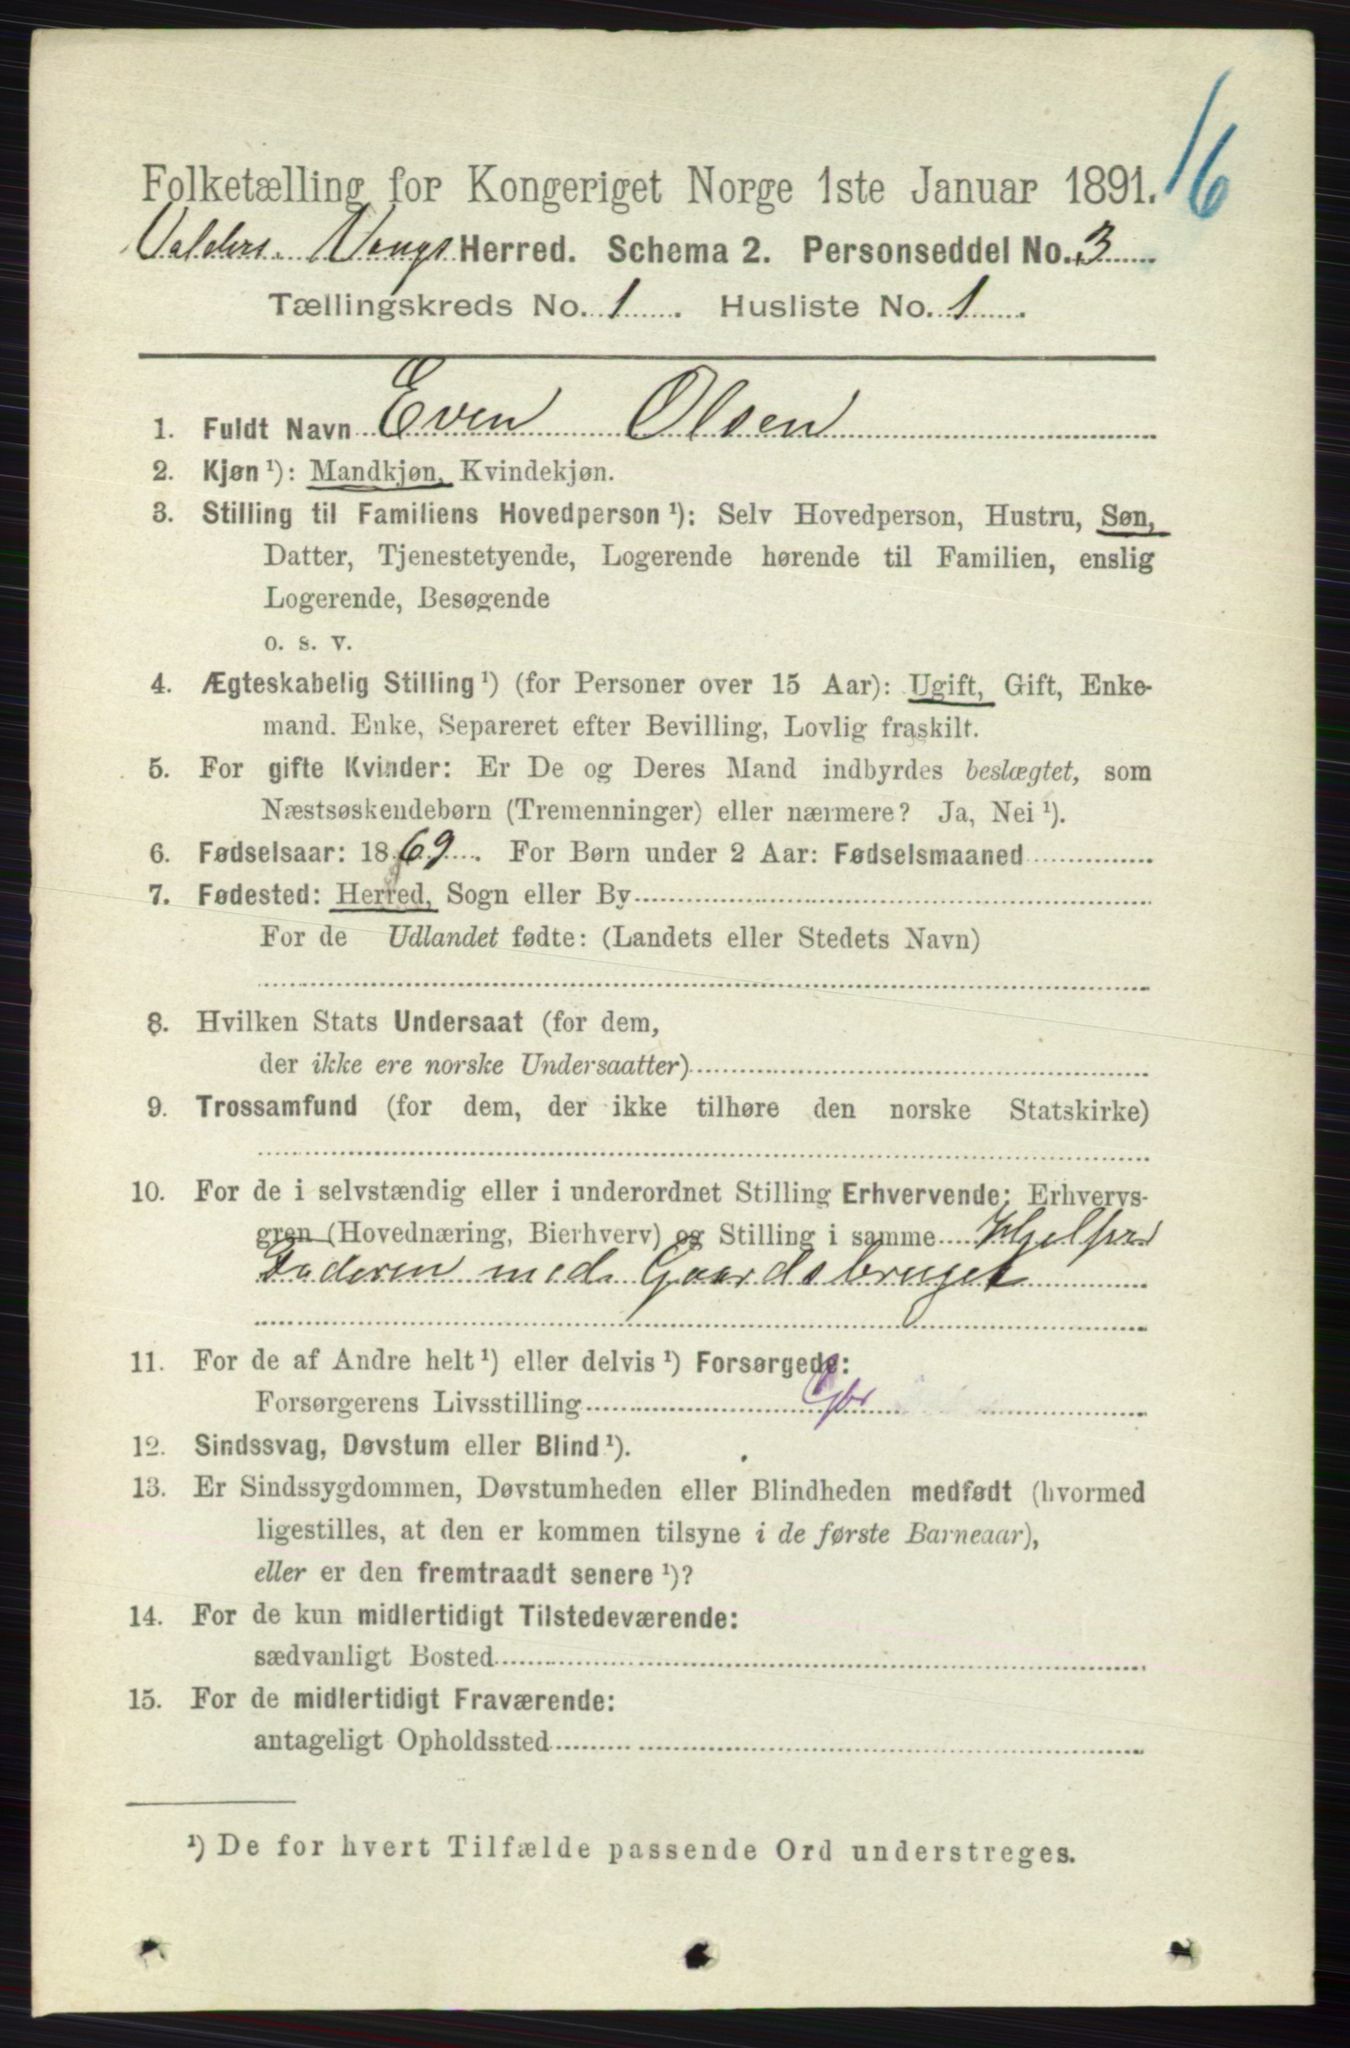 16
Folketælling for Kongeriget Norge 1ste Januar 1891.
Valders. Vangs Herred. Schema 2. Personseddel No. 3
Tællingskreds No. 1. Husliste No. 1.
1. Fuldt Navn Even Olsen
2. Kjøn ¹): Mandkjøn, Kvindekjøn.
3. Stilling til Familiens Hovedperson ¹): Selv Hovedperson, Hustru, Søn,
Datter, Tjenestetyende, Logerende hørende til Familien, enslig
Logerende, Besøgende
o. s. v.
4. Ægteskabelig Stilling ¹) (for Personer over 15 Aar): Ugift, Gift, Enke-
mand. Enke, Separeret efter Bevilling, Lovlig fraskilt.
5. For gifte Kvinder: Er De og Deres Mand indbyrdes beslægtet, som
Næstsøskendebørn (Tremenninger) eller nærmere? Ja, Nei ¹).
6. Fødselsaar: 1869. For Børn under 2 Aar: Fødselsmaaned
7. Fødested: Herred, Sogn eller By
For de Udlandet fødte: (Landets eller Stedets Navn)
8. Hvilken Stats Undersaat (for dem,
der ikke ere norske Undersaatter)
9. Trossamfund (for dem, der ikke tilhøre den norske Statskirke)
10. For de i selvstændig eller i underordnet Stilling Erhvervende: Erhvervs-
gren (Hovednæring, Bierhverv) og Stilling i samme Hjelper
Faderen med Gaardsbruget
11. For de af Andre helt ¹) eller delvis ¹) Forsørgede:
Forsørgerens Livsstilling Gbr
12. Sindssvag, Døvstum eller Blind ¹).
13. Er Sindssygdommen, Døvstumheden eller Blindheden medfødt (hvormed
ligestilles, at den er kommen tilsyne i de første Barneaar),
eller er den fremtraadt senere ¹)?
14. For de kun midlertidigt Tilstedeværende:
sædvanligt Bosted
15. For de midlertidigt Fraværende:
antageligt Opholdssted
¹) De for hvert Tilfælde passende Ord understreges.